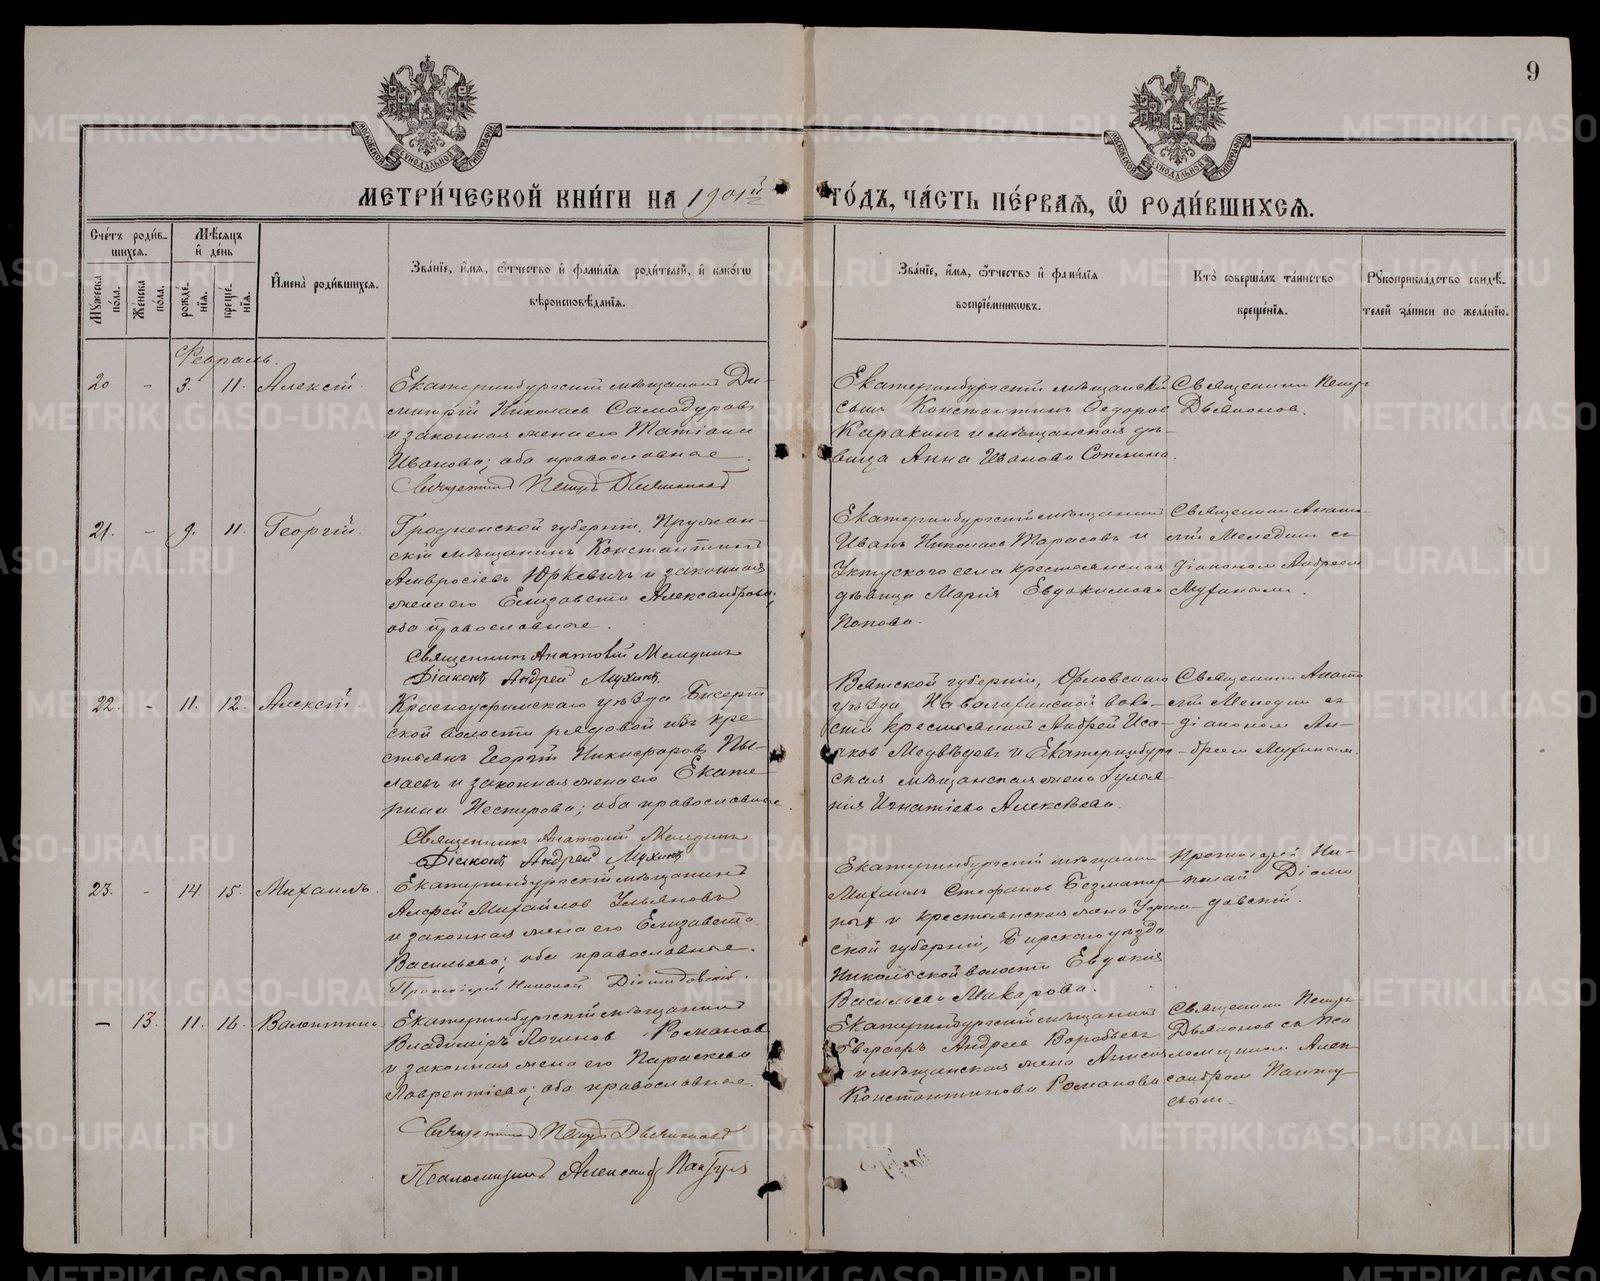 9
МЕТРИ́ЧЕСКОЙ КНИ́ГИ НА 1901й ГО́ДЪ, ЧА́СТЬ ПЕ́РВАѦ, Ѡ РОДИ́ВШИХСѦ.
Сче́тъ роди́в-
шихсѧ.
Мѣ́сѧцъ
и҆ де́нь
Мꙋ́жеска по́ла.
Же́нска по́ла.
рожде́нїѧ.
креще́нїѧ.
И҆мена̀ роди́вшихсѧ.
Зва́нїе, и҆́мѧ, ѻ҆́тчество и҆ фами́лїѧ роди́телей, и҆ како́гѡ
вѣроисповѣ́данїѧ.
Зва́нїе, и҆́мѧ, ѻ҆́тчество и҆ фами́лїѧ
воспрїе́мникѡвъ.
Кто̀ соверша́лъ та́инство
креще́нїѧ.
Рꙋкоприкла́дство свидѣ́-
телей за́писи по жела́нїю.
Февраль.
20 - 3. 11. Алексій.
Екатеринбургскій мѣщанинъ Ди-
митрій Николаевъ Самодуровъ
и законная жена его Татіана
Иванова; оба православные.
Священникъ Петръ Дьяконовъ
Екатеринбургскій мѣщанскій
сынъ Константинъ Ѳедоровъ
Каракинъ и мѣщанская дѣ-
вица Анна Иванова
Священникъ Петръ
Дьяконовъ.
21. - 9. 11. Георгій.
Гродненской губерніи, Пружан-
скій мѣщанинъ Константинъ
Амвросіевъ Юркевичъ и законная
жена его Елизавета Александрова;
оба православные.
Священникъ Анатолій Мелединъ
Діаконъ Андрей Мухинъ
Екатеринбургскій мѣщанинъ
Иванъ Николаевъ Тарасовъ и
Уктусского села крестьянская
дѣвица Марія Евдокимова
Попова.
Священникъ Анато-
лій Меледин съ
діакономъ Андреемъ
Мухинымъ.
22. - 11. 12. Алексій
Красноуфимскаго уѣзда Бисерт-
ской волости рядовой изъ кре-
стьянъ Георгій Никифоровъ Пы-
лаевъ и законная жена его Екате-
рина Нестерова; оба православные.
Священникъ Анатолій Меледин
Діаконъ Андрей Мухинъ
Вятской губерніи, Орловскаго
уѣзда, воло-
сти крестьянинъ Андрей Иса-
аковъ Медвѣдевъ и Екатеринбург-
ская мѣщанская жена Іуліа-
нія Игнатіева Алексѣева.
Священникъ Анато-
лій Меледин съ
діакономъ Ан-
дреемъ Мухинымъ.
23. - 14. 15. Михаилъ.
Екатеринбургскій мѣщанинъ
Андрей Михайловъ Ульяновъ
и законная жена его Елизавета
Васильева; оба православные.
Протоіерей Николай Діомидовскій.
Екатеринбургскій мѣщанинъ
Михаилъ Стефановъ Безматер-
ныхъ и крестьянская жена Уфим-
ской губерніи, Бирскаго уѣзда
Никольской волости Евдокія
Васильева Макарова.
Протоіерей Ни-
колай Діоми-
довскій.
- 13. 11. 16. Валентина
Екатеринбургскій мѣщанинъ
Владиміръ Логинов Романовъ
и законная жена его Параскева
Лаврентіева; оба православные.
Священникъ Петръ Дьяконовъ
Псаломщикъ Александръ Пантуевъ
Екатеринбургскій мѣщанинъ
Евграфъ Андреевъ Воробьевъ
и мѣщанская жена Анисія
Константинова Романова
Священникъ Петръ
Дьяконовъ съ пса-
ломщикомъ Алек-
сандромъ Панту-
евым.
METRIKI.GASO-URAL.RU